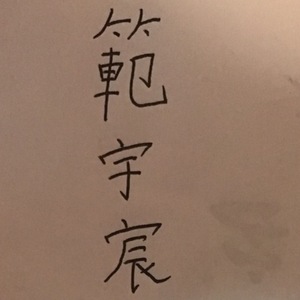 範宇宸